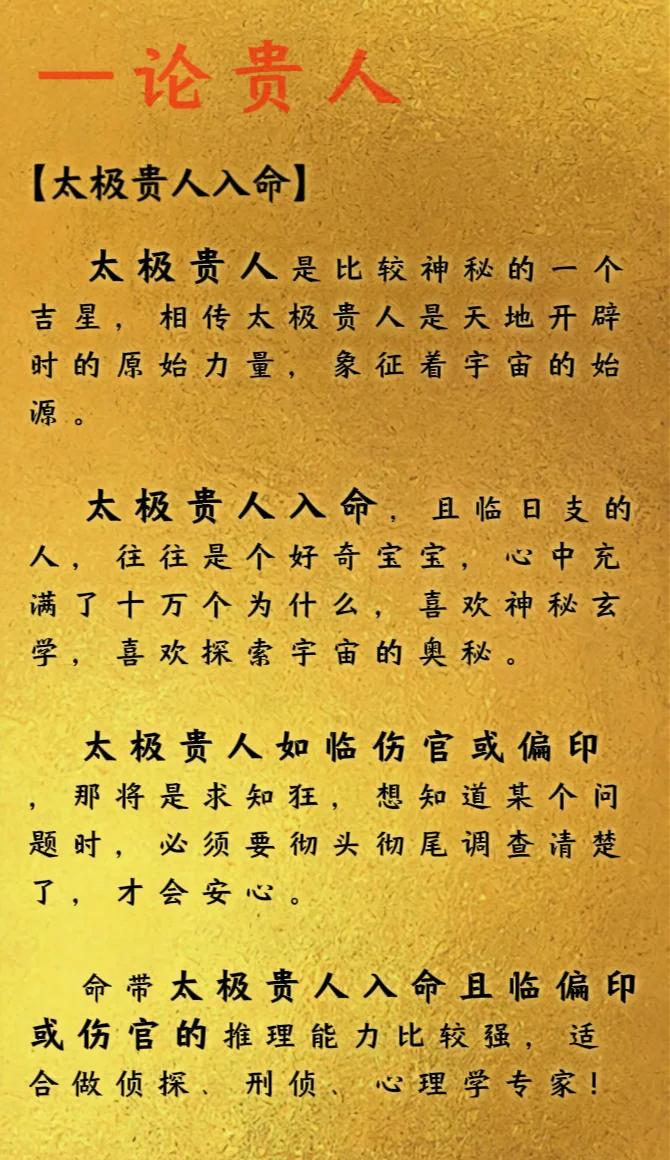 一论贵人
【太极贵人入命】
太极贵人是比较神秘的一个
吉星，相传太极贵人是天地开辟
时的原始力量，象征着宇宙的始
源。
太极贵人入命，且临日支的
人，往往是个好奇宝宝，心中充
满了十万个为什么，喜欢神秘玄
学，喜欢探索宇宙的奥秘。
太极贵人如临伤官或偏印
，那将是求知狂，想知道某个问
题时，必须要彻头彻尾调查清楚
了，才会安心。
命带太极贵人入命且临偏印
或伤官的推理能力比较强，适
合做侦探、刑侦、心理学专家！